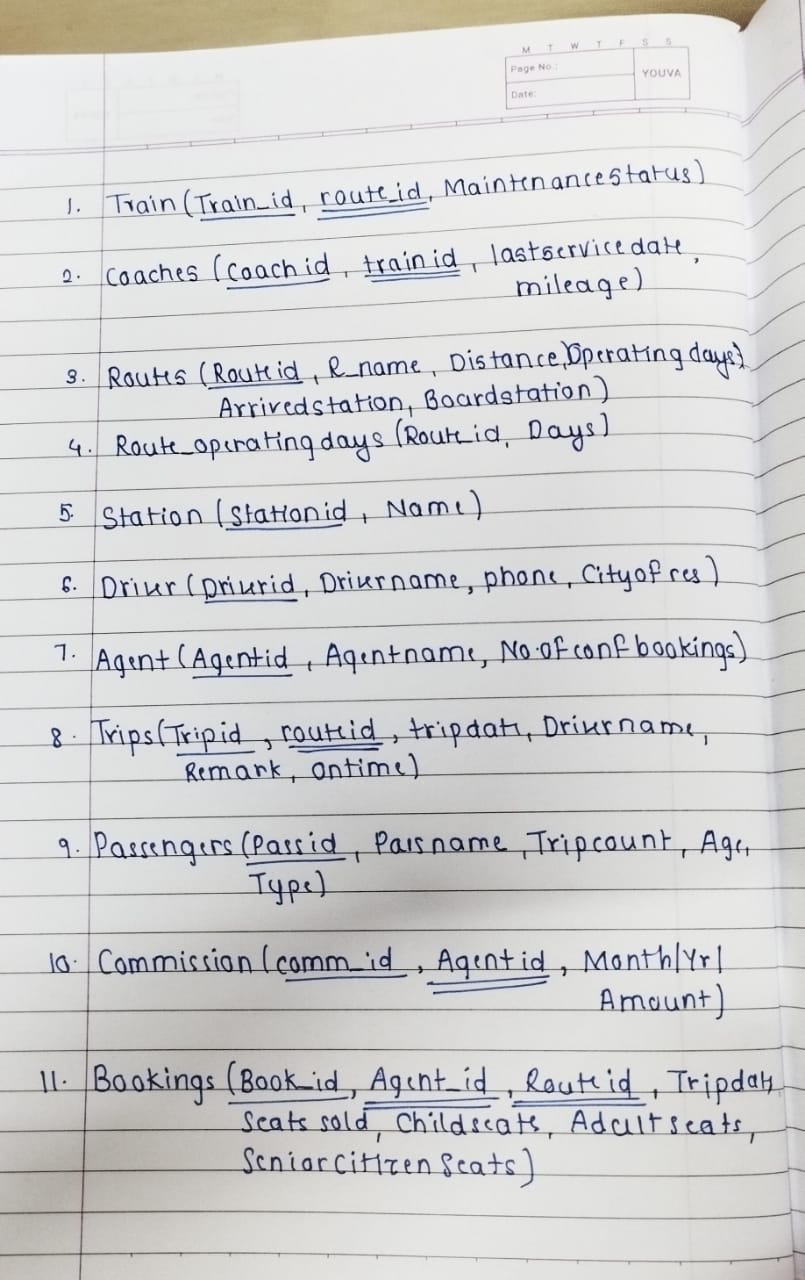 M T W T F S S
Page No.:
YOUVA
Date:
1. Train (Train_id, route_id, Maintenancestatus)
2. Coaches (Coach id, train id, lastservice date,
mileage)
3. Routes (Route id, R_name, Distance, Operating days)
Arrivedstation, Boardstation)
4. Route_operating days (Route id, Days)
5. Station (Station id, Name)
6. Driver (Driverid, Drivername, phone, Cityof res)
7. Agent (Agentid, Agentname, No.of conf bookings)
8. Trips (Trip id, routeid, tripdate, Drivername,
Remark, ontime)
9. Passengers (Pass id, Passname, Tripcount, Age,
Type)
10. Commission (comm_id, Agent id, Month/Yr/
Amount)
11. Bookings (Book_id, Agent_id, Route id, Tripdate
Seats sold, Childseats, Adultseats,
Seniorcitizen Seats)